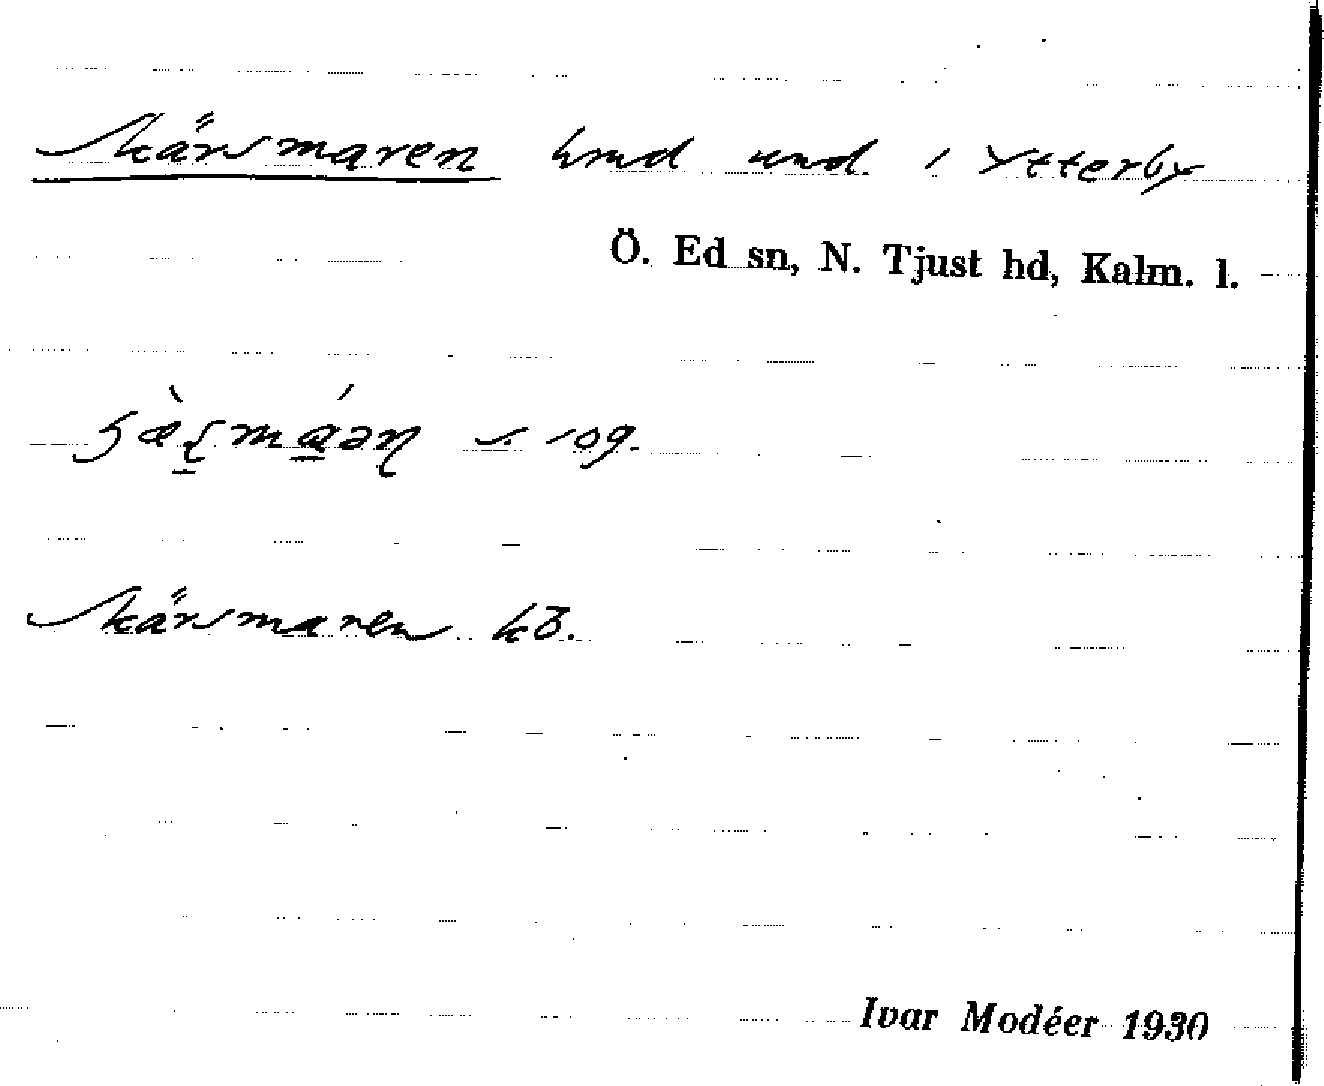 Skärsmaren hmd und. i Ytterby
Ö. Ed sn, N. Tjust hd, Kalm. l.
s. 109.
Skärsmaren kB.
Ivar Modéer 1930